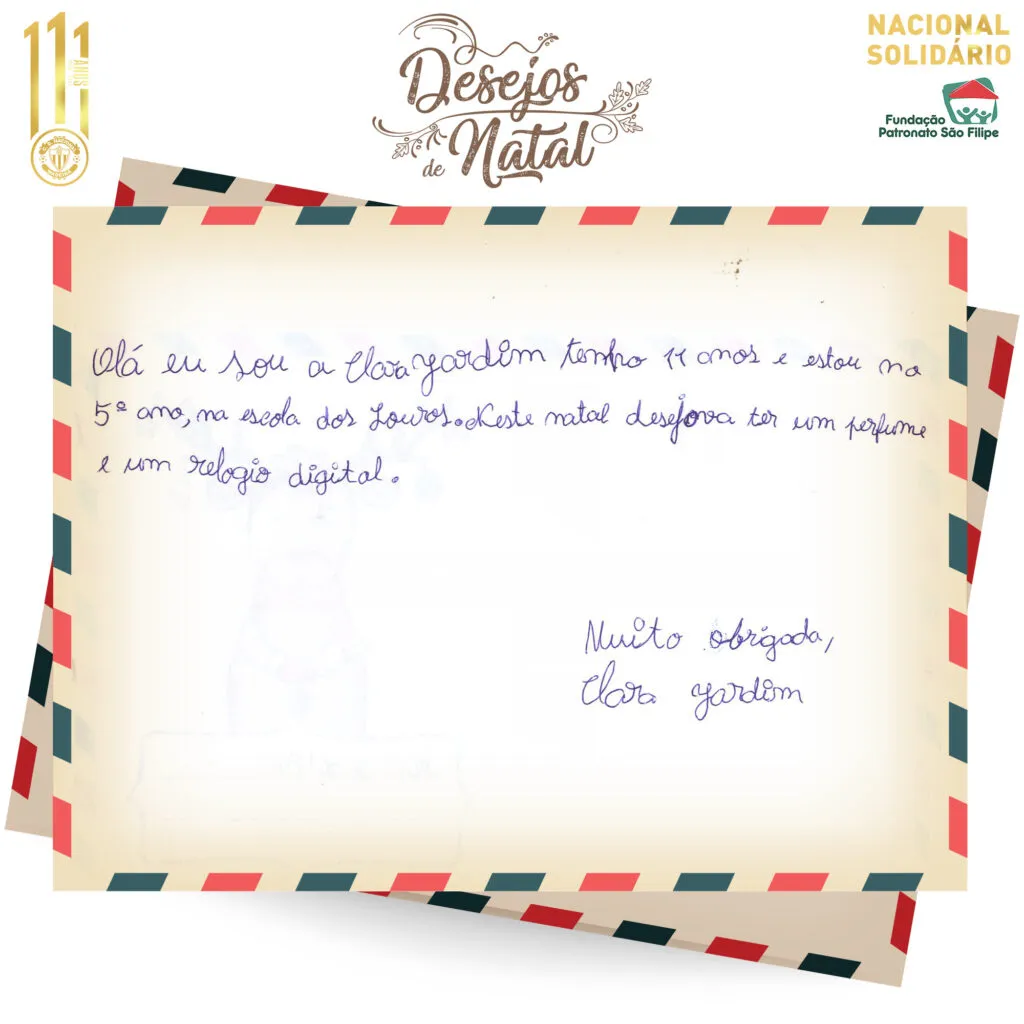 111
ANOS
Desejos
de Natal
NACIONAL
SOLIDÁRIO
Fundação
Patronato São Filipe
Olá eu sou a Clara Jardim tenho 11 anos e estou no
5º ano, na escola dos Louros. Neste natal desejava ter um perfume
e um relogio digital.
Muito obrigada,
Clara Jardim